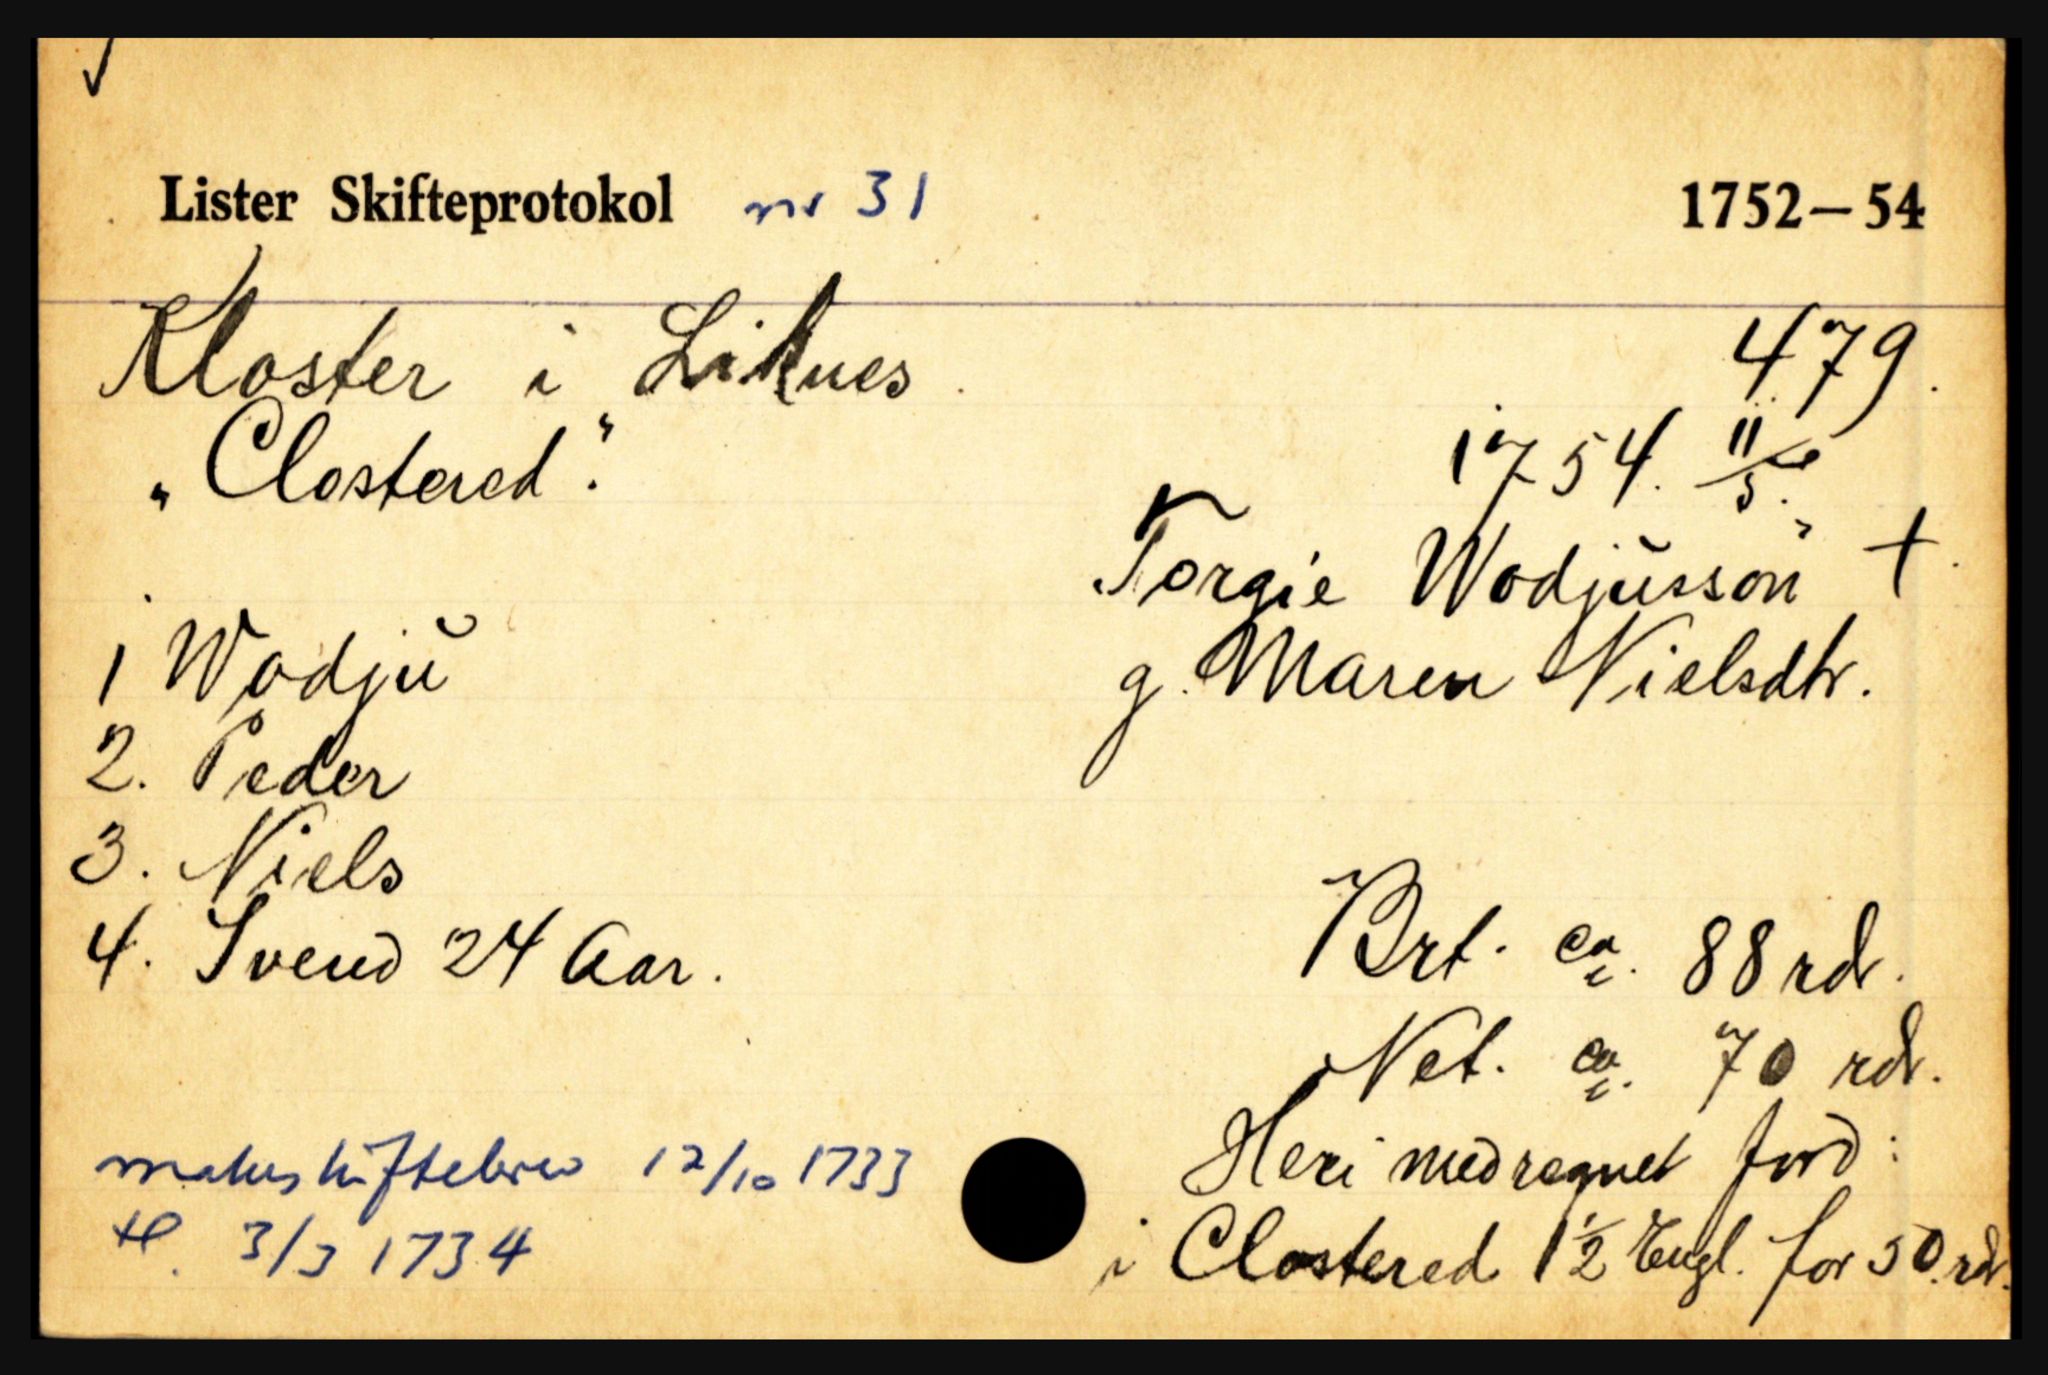 Lister Skifteprotokol nr 31 1752–54
Kloster i Liknes 479.
"Clostered". 1754. 11/5.
Torgie Wodjusson +
g. Maren Nielsdtr.
1 Wodju
2. Peder
3. Niels
4. Svend 24 Aar.
Brt. ca. 88 rdr.
Net. ca. 70 rdr.
Heri medregnet jord:
i Clostered 1 1/2 Engl. for 50 rdr.
makeskiftebrev 12/10 1733
tl. 3/3 1734